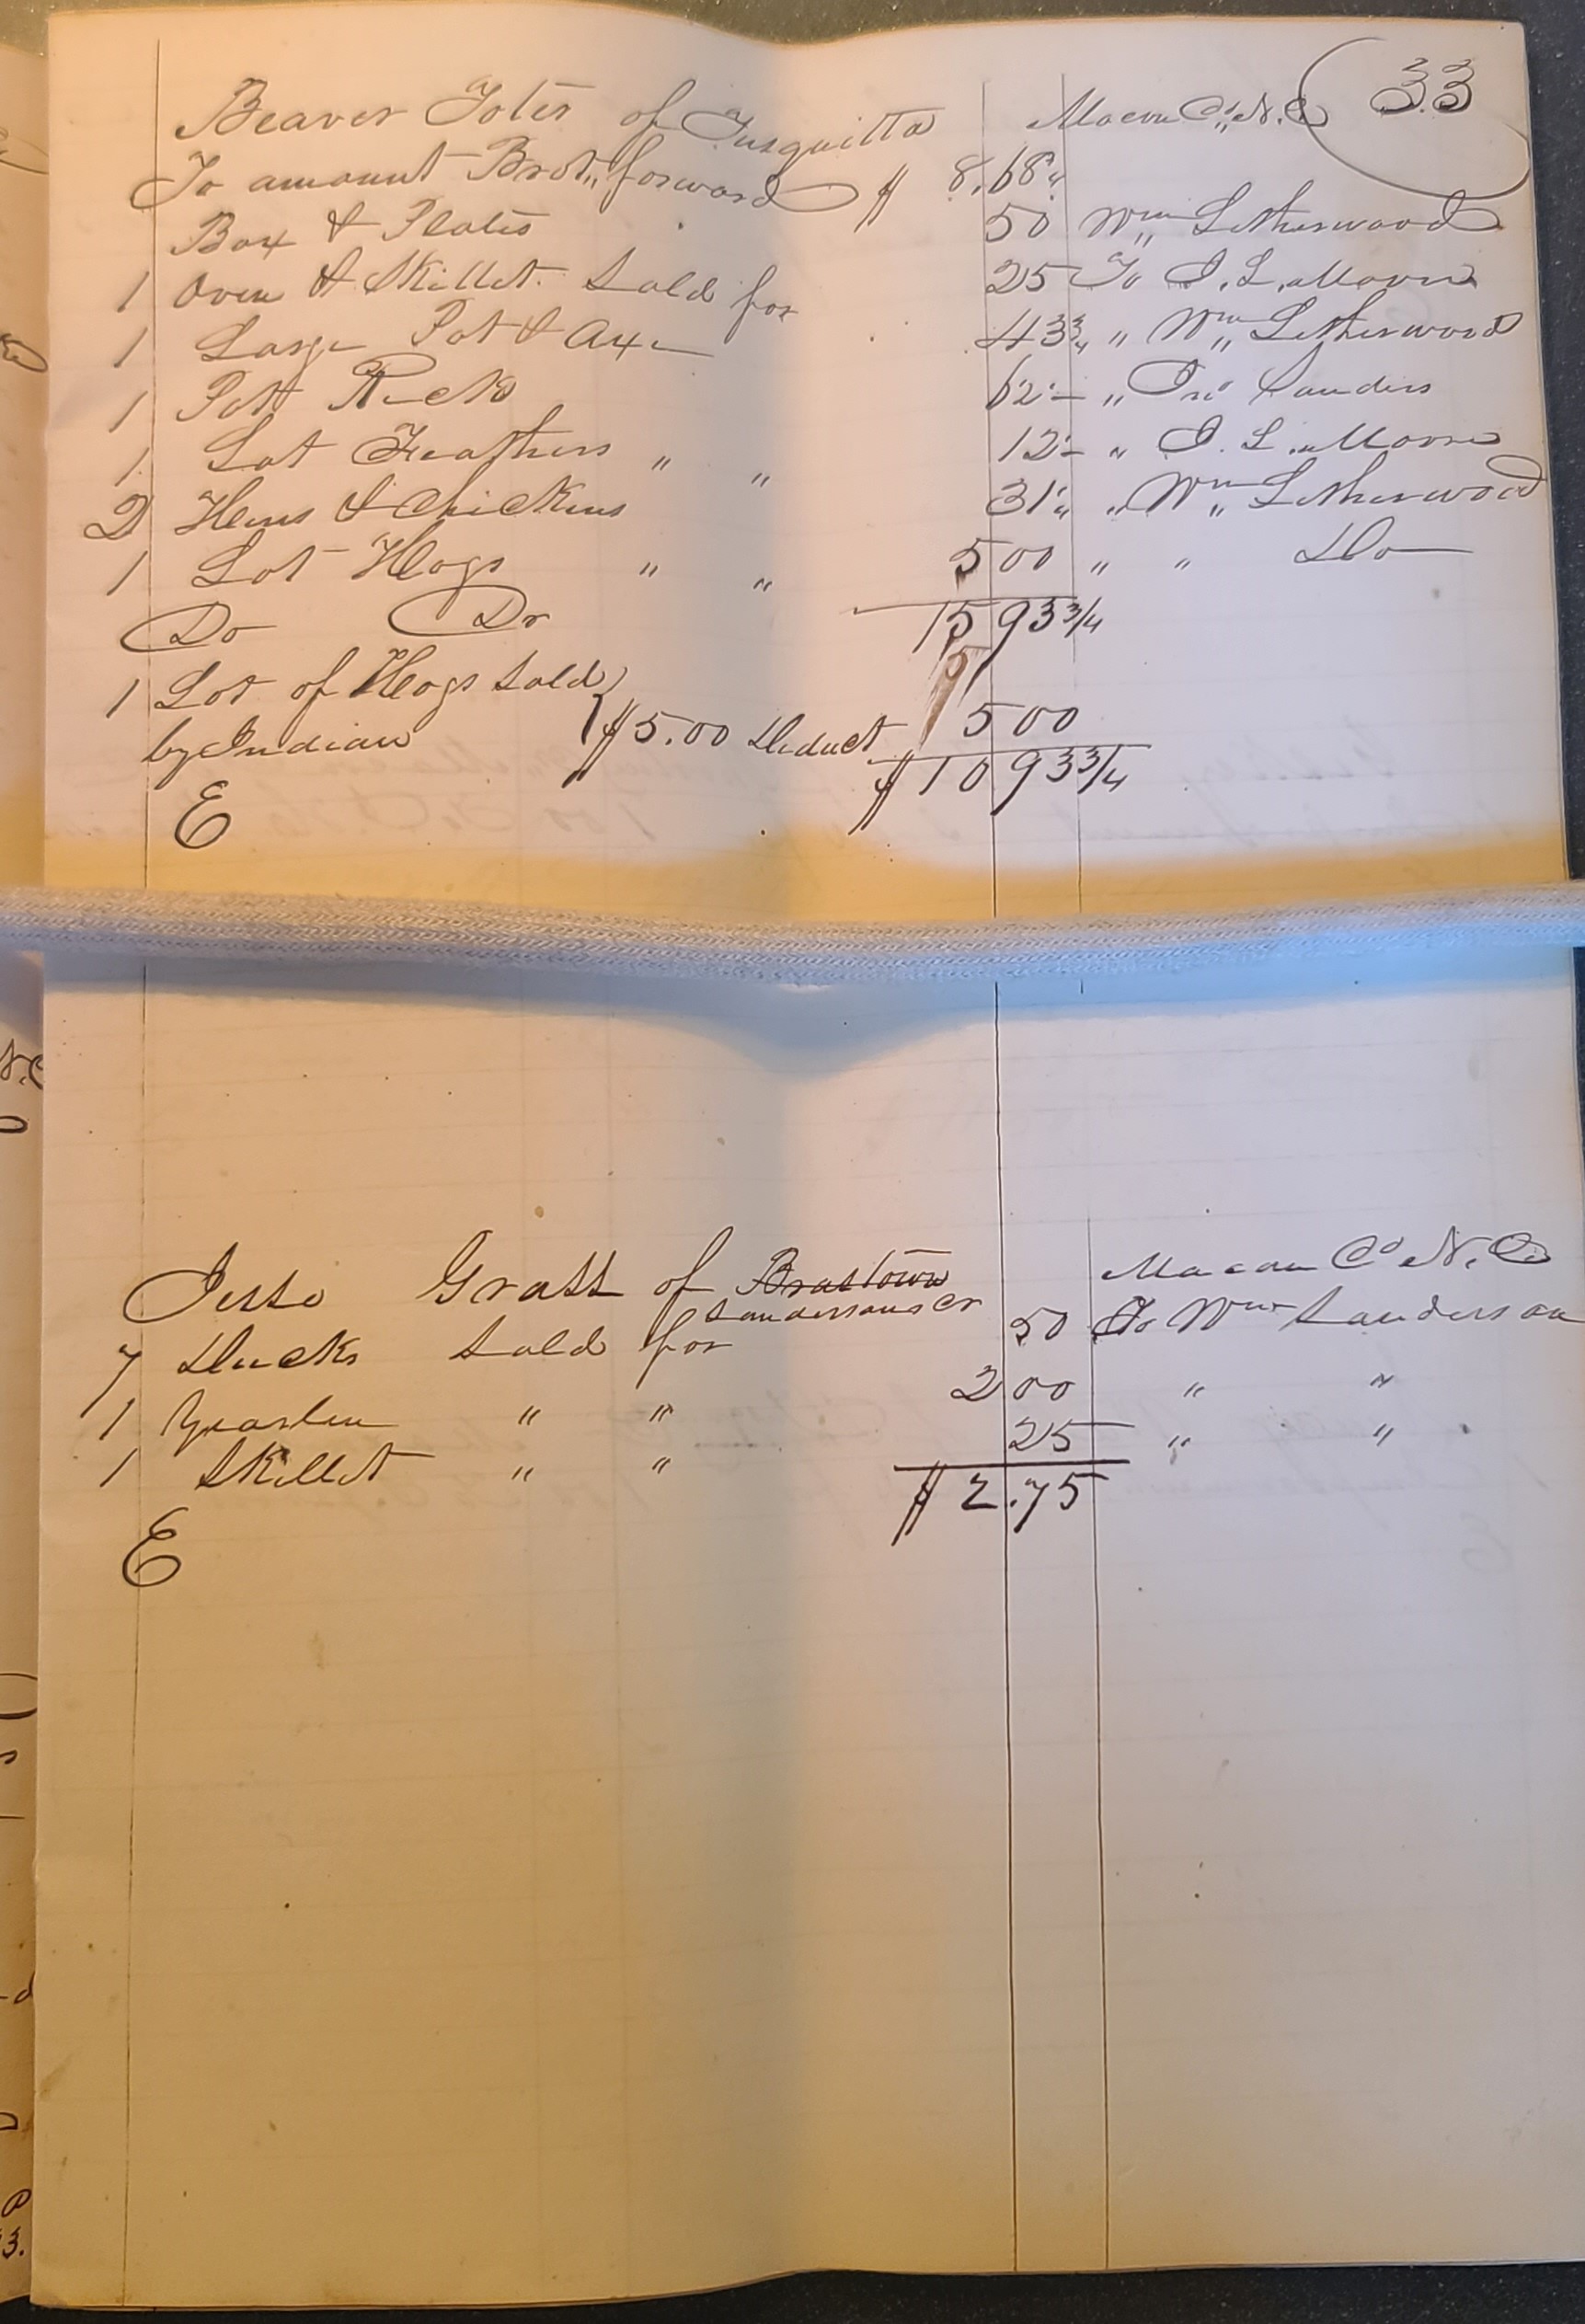 33
Beaver Toter of Tusquitta Macon Co,, N.C
To amount Brot,, forward $ 8.68 „
Box & Plates 50 Wm,, Letherwood
1 Oven & Skillet Sold for 25 To J. L. Moore
1 Large Pot & Axe 43 3/4 „ Wm,, Letherwood
1 Pott 62 „ Jno Sanders
1 Lot Feathers „ „ 12 „ J. L. Moore
2 Hens & Chickens 31 „ „ Wm,, Letherwood
1 Lot Hogs „ „ 5 00 „ „ Do
Do Dr 15 93 3/4
1 Lot of Hogs Sold
by Indian } $5.00 Deduct 5 00
$ 10 93 3/4
E
Jesse Grass of Brastown Macon Co N. C
Sandersons Cr
7 Ducks Sold for 50 To Wm Sanderson
1 „ „ 2 00 „ „
1 Skillet „ „ 25 „ „
$ 2.75
E